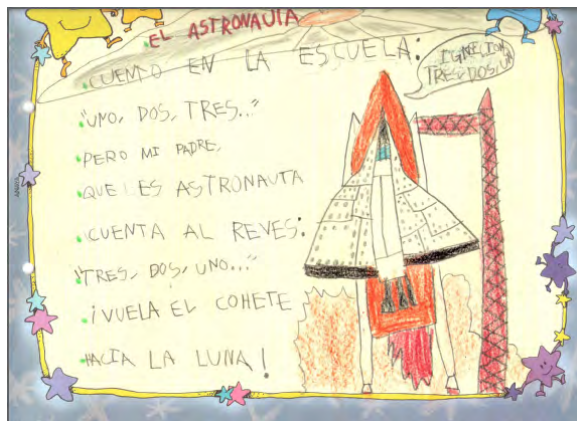 EL ASTRONAUTA
CUENTO EN LA ESCUELA:
"UNO, DOS, TRES..."
PERO MI PADRE,
QUE ES ASTRONAUTA
CUENTA AL REVES:
"TRES, DOS, UNO..."
¡VUELA EL COHETE
HACIA LA LUNA!
TRES, DOS,